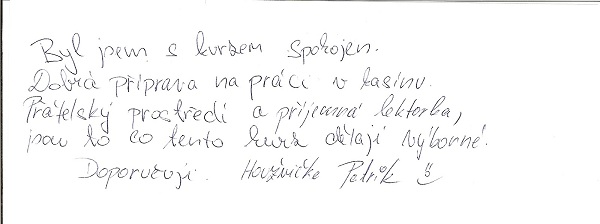 Byl jsem s kurzem spokojen.
Dobrá příprava na práci v kasinu.
Přátelský prostředí a příjemná lektorka,
jsou to co tento kurz dělají výborné.
Doporučuji. Patrik